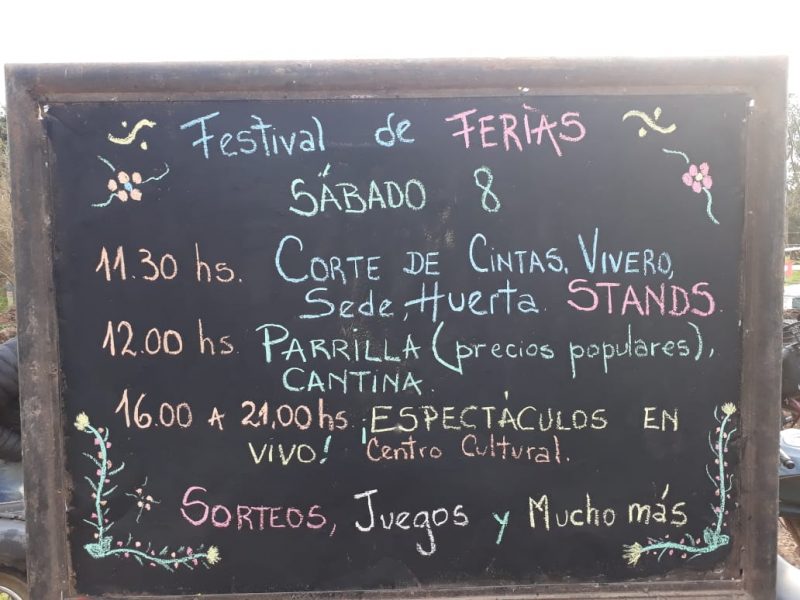 Festival de FERIAS
SÁBADO 8
11.30 hs. CORTE DE CINTAS, VIVERO,
Sede, Huerta STANDS.
12.00 hs. PARRILLA (precios populares),
CANTINA.
16.00 A 21,00 hs. ¡ESPECTÁCULOS EN
VIVO! Centro Cultural.
SORTEOS, Juegos y Mucho más